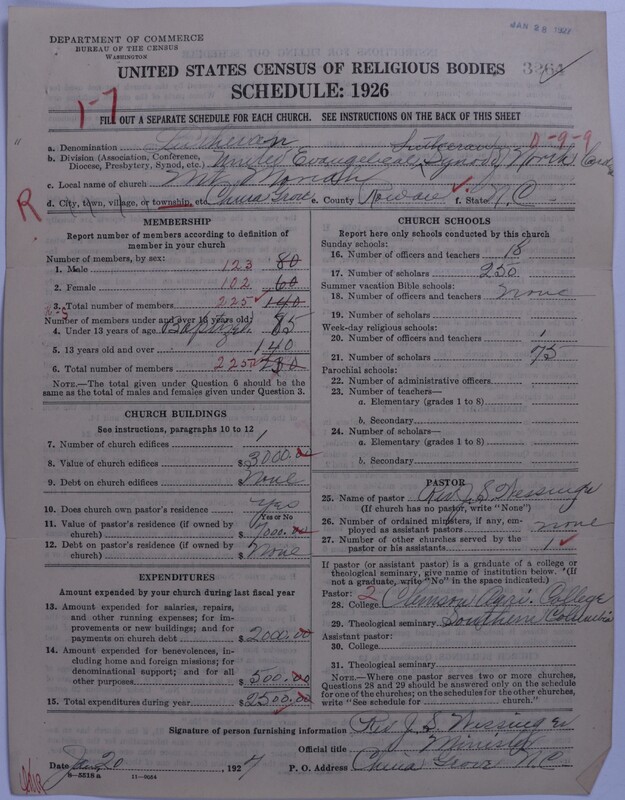 JAN 28 1927
DEPARTMENT OF COMMERCE
BUREAU OF THE CENSUS
WASHINGTON
UNITED STATES CENSUS OF RELIGIOUS BODIES 3264
SCHEDULE: 1926
1-7
FILL OUT A SEPARATE SCHEDULE FOR EACH CHURCH. SEE INSTRUCTIONS ON THE BACK OF THIS SHEET
a. Denomination Lutheran
0-9-9
b. Division (Association, Conference, Diocese, Presbytery, Synod, etc.) United Evangelical Lutheran Synod North Carolina
c. Local name of church Mt. Moriah
R
d. City, town, village, or township, etc China Grove e. County Rowan f. State N.C.
MEMBERSHIP
Report number of members according to definition of member in your church
Number of members, by sex:
1. Male 123 80
2. Female 102 60
3. Total number of members 225 140
Number of members under and over 13 years old:
4. Under 13 years of age Baptized 85
5. 13 years old and over 140
6. Total number of members 225
NOTE.—The total given under Question 6 should be the same as the total of males and females given under Question 3.
CHURCH BUILDINGS
See instructions, paragraphs 10 to 12
7. Number of church edifices 1
8. Value of church edifices $3000.00
9. Debt on church edifices $None
10. Does church own pastor's residence Yes
Yes or No
11. Value of pastor's residence (if owned by church) $7000.00
12. Debt on pastor's residence (if owned by church) $None
EXPENDITURES
Amount expended by your church during last fiscal year
13. Amount expended for salaries, repairs, and other running expenses; for improvements or new buildings; and for payments on church debt $2000.00
14. Amount expended for benevolences, including home and foreign missions; for denominational support; and for all other purposes $500.00
15. Total expenditures during year $2500.00
CHURCH SCHOOLS
Report here only schools conducted by this church
Sunday schools:
16. Number of officers and teachers 18
17. Number of scholars 250
Summer vacation Bible schools:
18. Number of officers and teachers none
19. Number of scholars
Week-day religious schools:
20. Number of officers and teachers 1
21. Number of scholars 75
Parochial schools:
22. Number of administrative officers
23. Number of teachers—
a. Elementary (grades 1 to 8)
b. Secondary
24. Number of scholars—
a. Elementary (grades 1 to 8)
b. Secondary
PASTOR
25. Name of pastor Rev. J. S. Wessinger
(If church has no pastor, write "None")
26. Number of ordained ministers, if any, employed as assistant pastors none
27. Number of other churches served by the pastor or his assistants 1
If pastor (or assistant pastor) is a graduate of a college or theological seminary, give name of institution below. (If not a graduate, write "No" in the space indicated.)
Pastor: 2
28. College Clemson Agri. College
29. Theological seminary Southern Columbia
Assistant pastor:
30. College
31. Theological seminary
NOTE.—Where one pastor serves two or more churches, Questions 28 and 29 should be answered only on the schedule for one of the churches; on the schedules for the other churches, write "See schedule for ............ church."
Signature of person furnishing information Rev J. S. Wessinger
Official title Minister
Date Jan, 20, 1927 P. O. Address China Grove N.C.
8-5518 a 11-9064